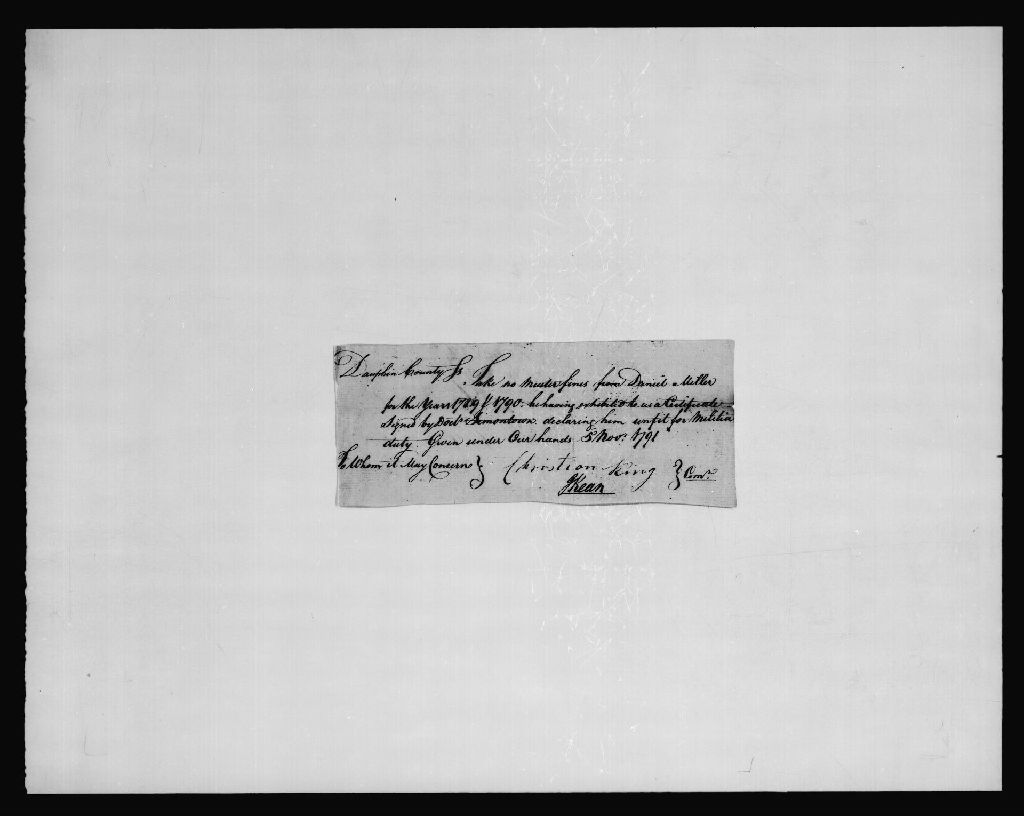 Dauphin County Ss. Take no Muster fines from Daniel Miller
for the Years 1789 & 1790. he having exhibited to us a Certificate
signed by Doctr Simontown declaring him unfit for Militia
duty. Given under Our hands 5 Novr. 1791
To Whom it May Concern } Christian King } Comrs.
JKean